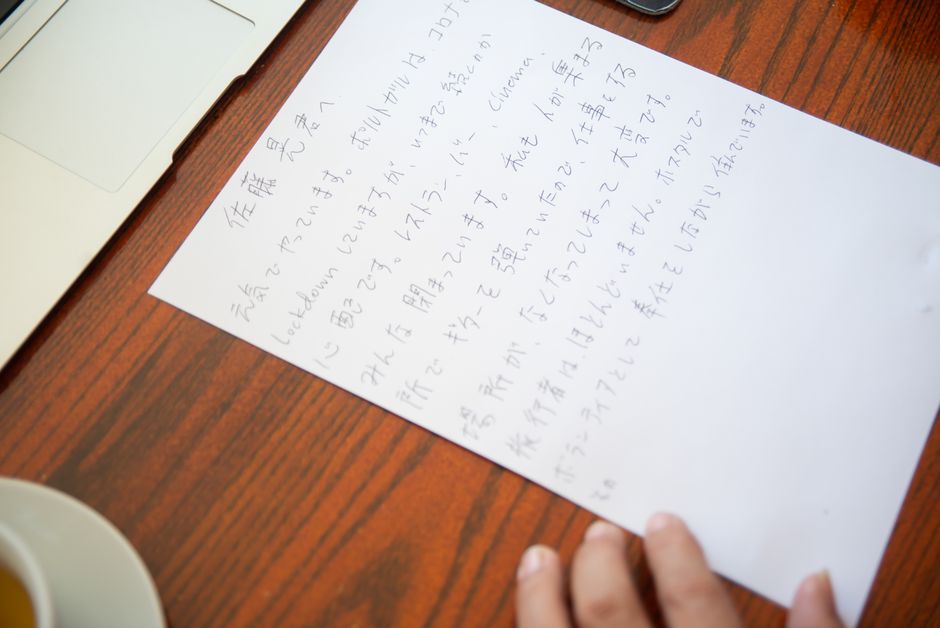 佐藤 晃 君へ
元気でやっています。 ポルトガルは、コロナで
Lockdown していますが、いつまで続くのか
心配です。レストラン、バー、Cinema、
みんな 閉まっています。 私も 人が 集まる
所で ギターを 弾いていたので、仕事をする
場所が、なくなってしまって 大変です。
旅行者は、ほとんどいません。ホスタルで
ボランティアとして 奉仕をしながら 住んでいます。